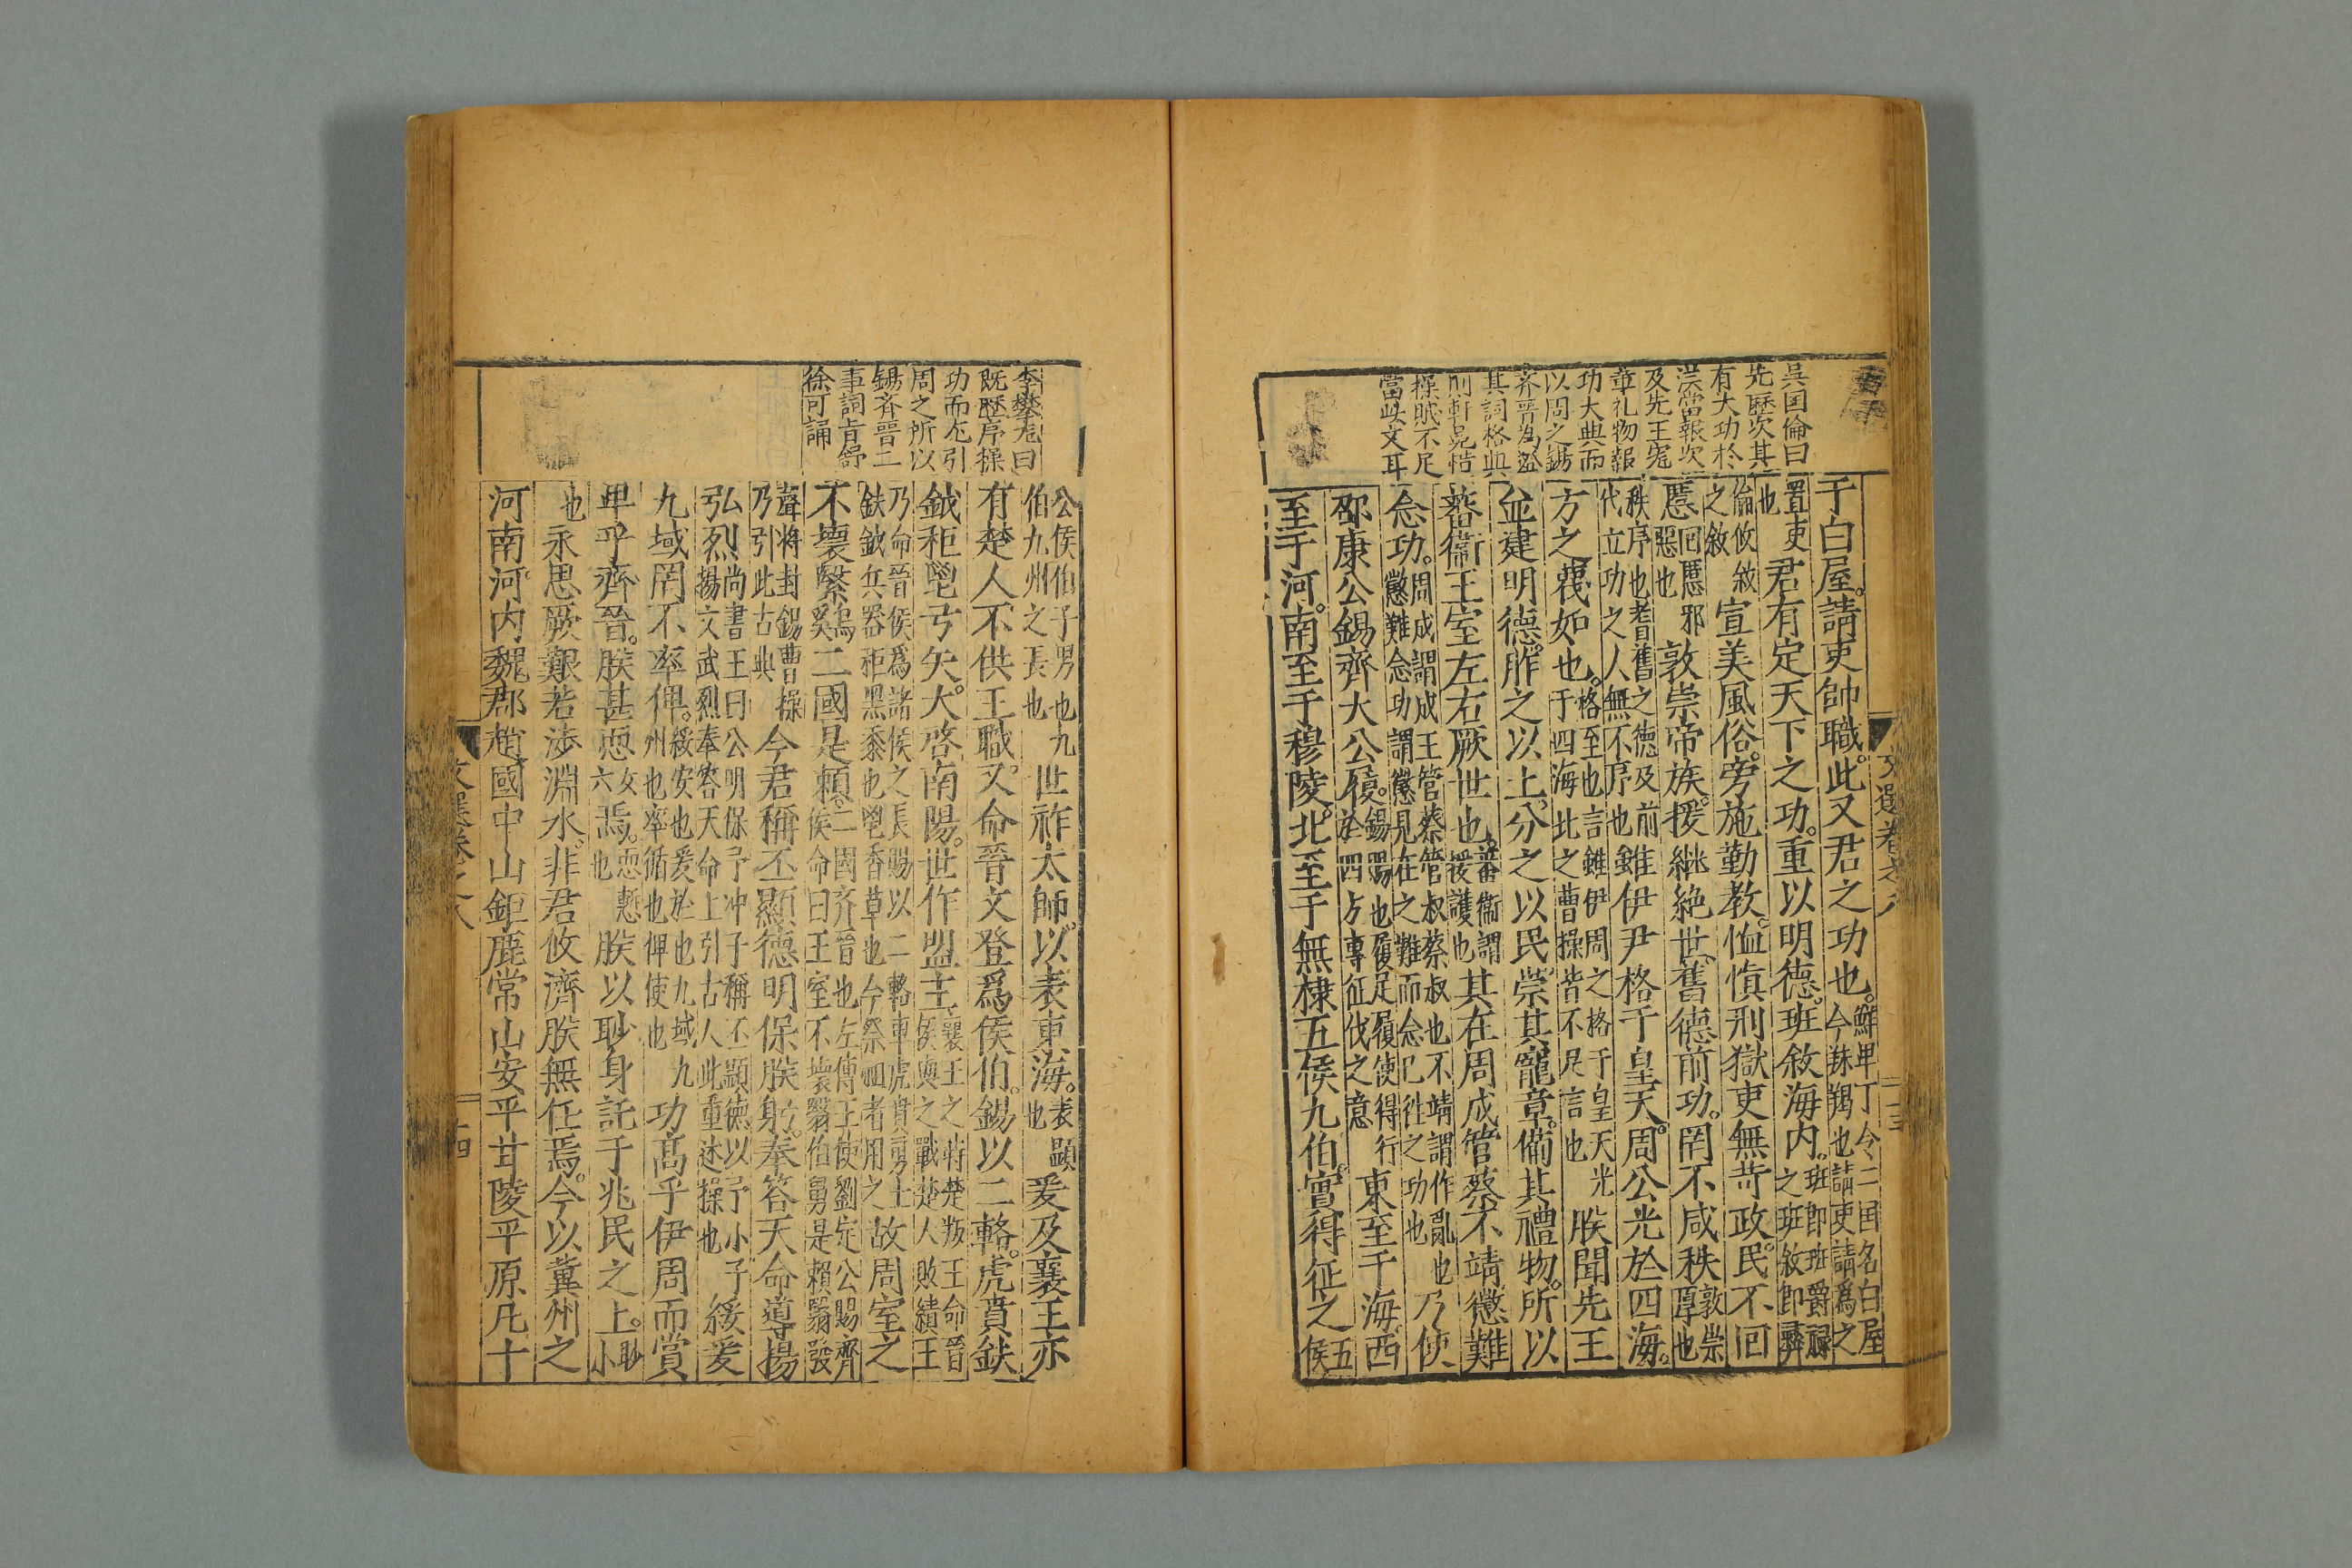 吳国倫曰
先歷次其
有大功於
漢當報次
及先王寃
章礼物報
功大典而
以周之錫
齐晋爲證
其詞格典
則軒昂惜
操賊不足
當此文耳
文選卷之八
于白屋。請吏帥職。此又君之功也。鮮卑丁令二国名白屋今靺羯也請吏請爲之
置吏也君有定天下之功。重以明德。班敘海内。班即班爵祿之班敘即彛
倫攸敘之敘宣美風俗。旁施勤教。恤慎刑獄吏無苛政民。不回
慝回慝邪惡也敦崇帝族。援継絶世。舊德前功。罔不咸秩敦崇厚也
秩序也耆舊之德及前代立功之人無不序也雖伊尹格于皇天。周公光於四海。
方之蔑如也。格至也言雖伊周之格于皇天光于四海比之曹操皆不足言也朕聞先王
並建明德。胙之以土分之以民崇其寵章。備其禮物。所以
蕃衞王室左右厥世也。蕃衞謂援護也其在周成管蔡不靖懲難
念功。周成謂成王管蔡管叔蔡叔也不靖謂作亂也懲難念功謂懲見在之難而念已徃之功也乃使
邵康公錫齊太公履。錫賜也履足履使得行於四方專征伐之意東至于海。西
至于河。南至于穆陵。北至于無棣五侯九伯。實得征之五侯
李攀龙曰
既歷序操
功而乞引
周之所以
錫齐晉二
事詞旨舒
徐可誦
公侯伯子男也九伯九州之長也世祚太師。以表東海。表顕也爰及襄王亦
有楚人不供王職。又命晉文登爲侯伯。錫以二輅。虎賁鈇
鉞秬鬯弓矢。大啓南陽。世作盟主。襄王之時楚叛王命晉侯與之戰楚人敗績王
乃命晉侯爲諸侯之長賜以二輅車虎賁勇士鈇鉞兵器秬黑黍也鬯香草也今祭祖者用之故周室之
不壞繄烏奚二國是賴。二國齐晉也左傳王使劉定公賜齊侯命曰王室不壞翳伯舅是賴翳發
聲将封錫曹操乃引此古典今君稱丕顯德明保朕躬。奉答天命導揚
弘烈尚書王曰公明保予冲子稱丕顕德以予小子揚文武烈奉答天命上引古人此重述操也綏爰
九域罔不率俾。綏安也爰於也九域九州也率循也俾使也功高乎伊周而賞
卑乎齊晉。朕甚恧女六焉。恧慙也朕以眇身託于兆民之上。眇小
也永思厥艱若涉淵水。非君攸濟朕無任焉。今以冀州之
河南河内魏郡趙國中山鉅鹿常山安平甘陵平原凡十
十四